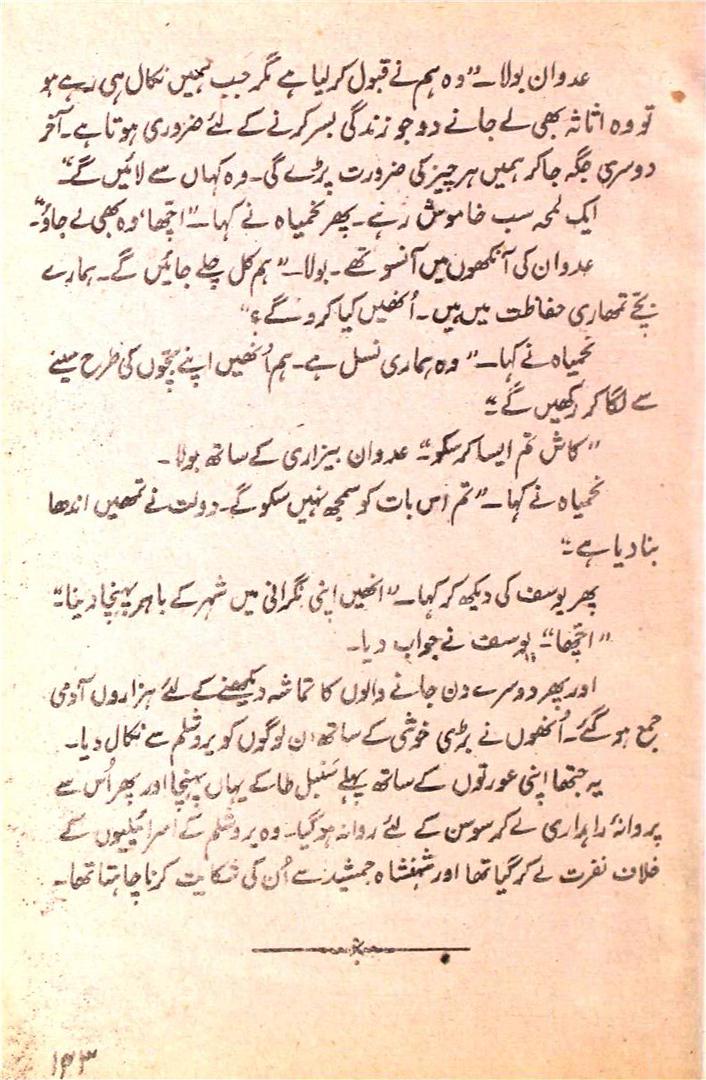 عدوان بولا۔ ”وہ ہم نے قبول کر لیا ہے مگر جب ہمیں نکال ہی رہے ہو
تو وہ اثاثہ بھی لے جانے دو جو زندگی بسر کرنے کے لئے ضروری ہوتا ہے۔ آخر
دوسری جگہ جا کر ہمیں ہر چیز کی ضرورت پڑے گی۔ وہ کہاں سے لائیں گے“
ایک لمحہ سب خاموش رہے۔ پھر نحمیاہ نے کہا۔ ”اچھا، وہ بھی لے جاؤ“۔
عدوان کی آنکھوں میں آنسو تھے۔ بولا۔ ”ہم کل چلے جائیں گے۔ ہمارے
بچے تمھاری حفاظت میں ہیں۔ اُنھیں کیا کرو گے؟“
نحمیاہ نے کہا۔ ”وہ ہماری نسل ہے۔ ہم اُنھیں اپنے بچوں کی طرح سینے
سے لگا کر رکھیں گے“
”کاش تم ایسا کر سکو“ عدوان بیزاری کے ساتھ بولا۔
نحمیاہ نے کہا۔ ”تم اس بات کو سمجھ نہیں سکو گے۔ دولت نے تمھیں اندھا
بنا دیا ہے“
پھر یوسف کی دیکھ کر کہا۔ ”انھیں اپنی نگرانی میں شہر کے باہر پہنچا دینا“
”اچھا“ یوسف نے جواب دیا۔
اور پھر دوسرے دن جانے والوں کا تماشہ دیکھنے کے لئے ہزاروں آدمی
جمع ہو گئے۔ اُنھوں نے بڑی خوشی کے ساتھ ان لوگوں کو یروشلم سے نکال دیا۔
یہ جتھا اپنی عورتوں کے ساتھ پہلے سنبل طا کے یہاں پہنچا اور پھر اُس سے
پروانۂ راہداری لے کر سوسن کے لئے روانہ ہو گیا۔ وہ یروشلم کے اسرائیلیوں کے
خلاف نفرت لے کر گیا تھا اور شہنشاہ جمشید سے اُن کی شکایت کرنا چاہتا تھا۔
۱۴۳